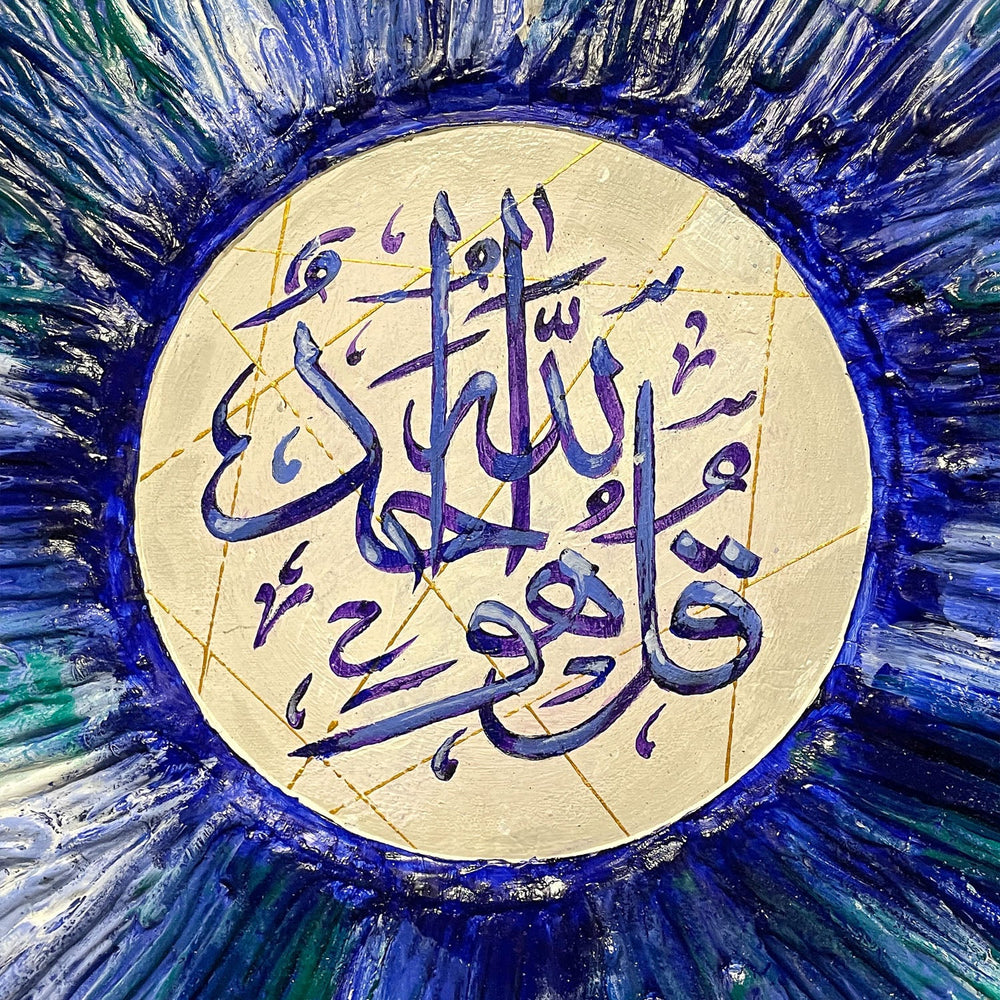 قُلْ هُوَ
اللَّهُ أَحَدٌ